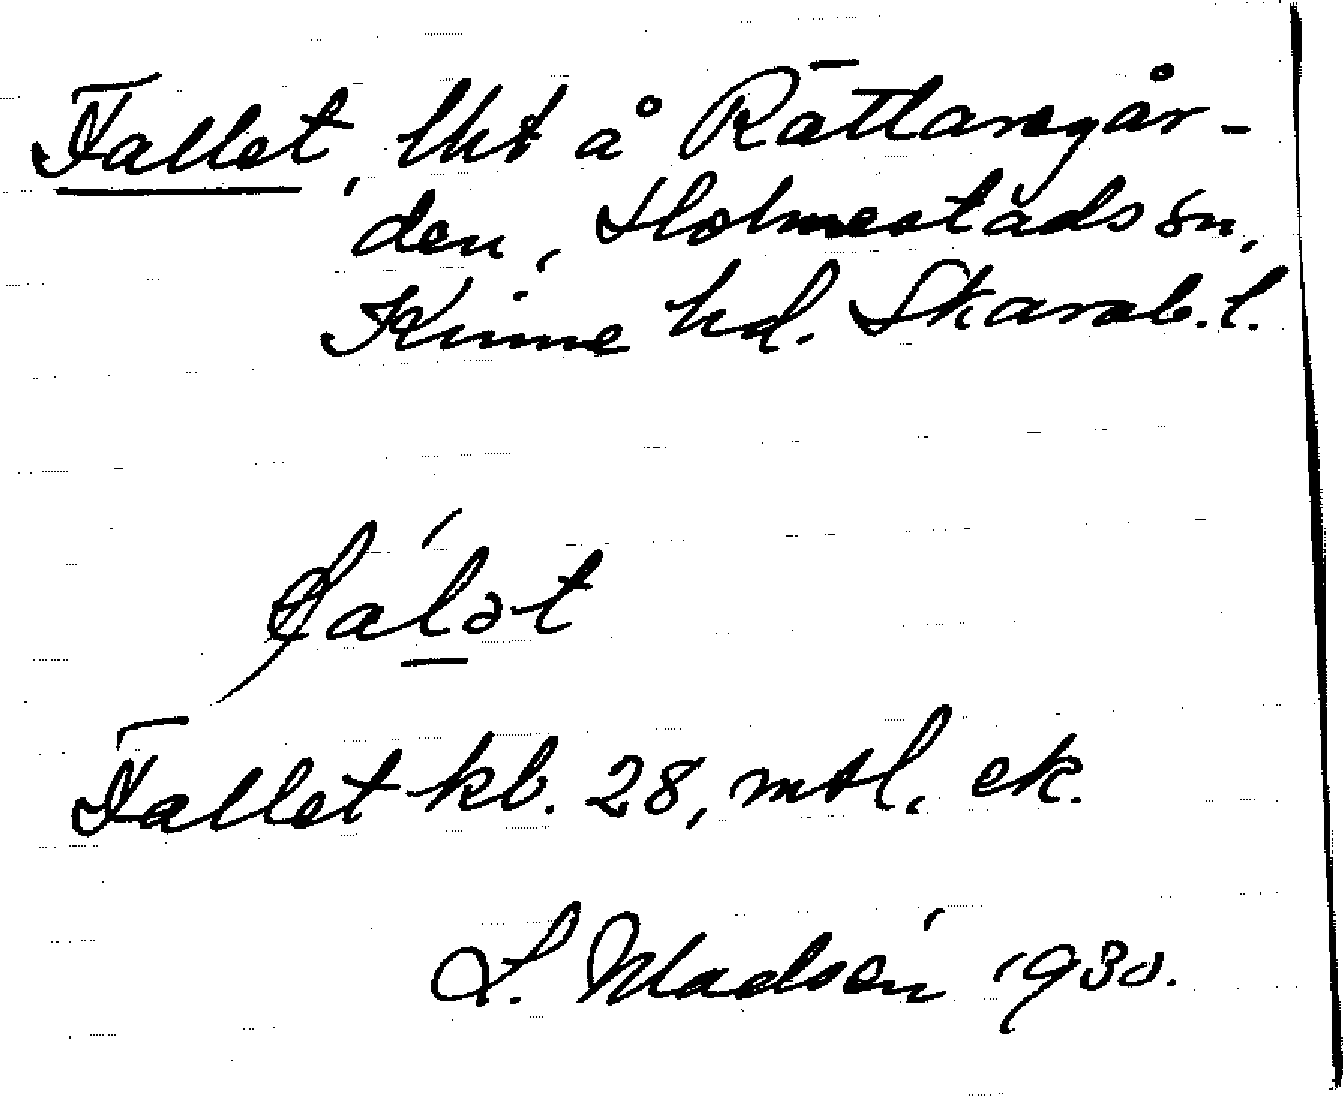 Fallet, lht å Rättaregår-
den, Holmestads sn,
Kinne hd. Skarab. l.
faĺət
Fallet kb. 28, mtl. ek.
L. Madsén 1930.